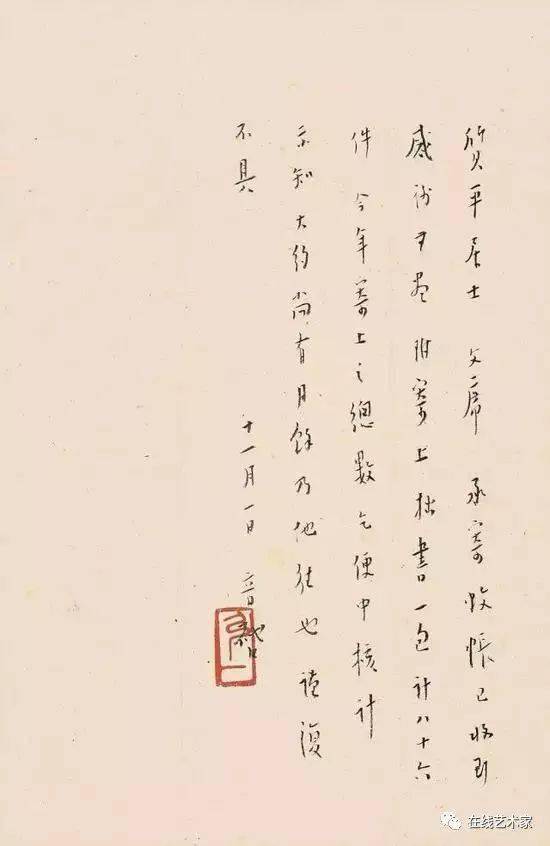 質平居士 文席 承寄蚊帳已收到
感謝不盡 附寄上拙書一包計八十六
件 今年寄上之總數乞便中核計
示知 大約尚有月餘乃他往也 謹復
不具
十一月一日 音啟
在线艺术家